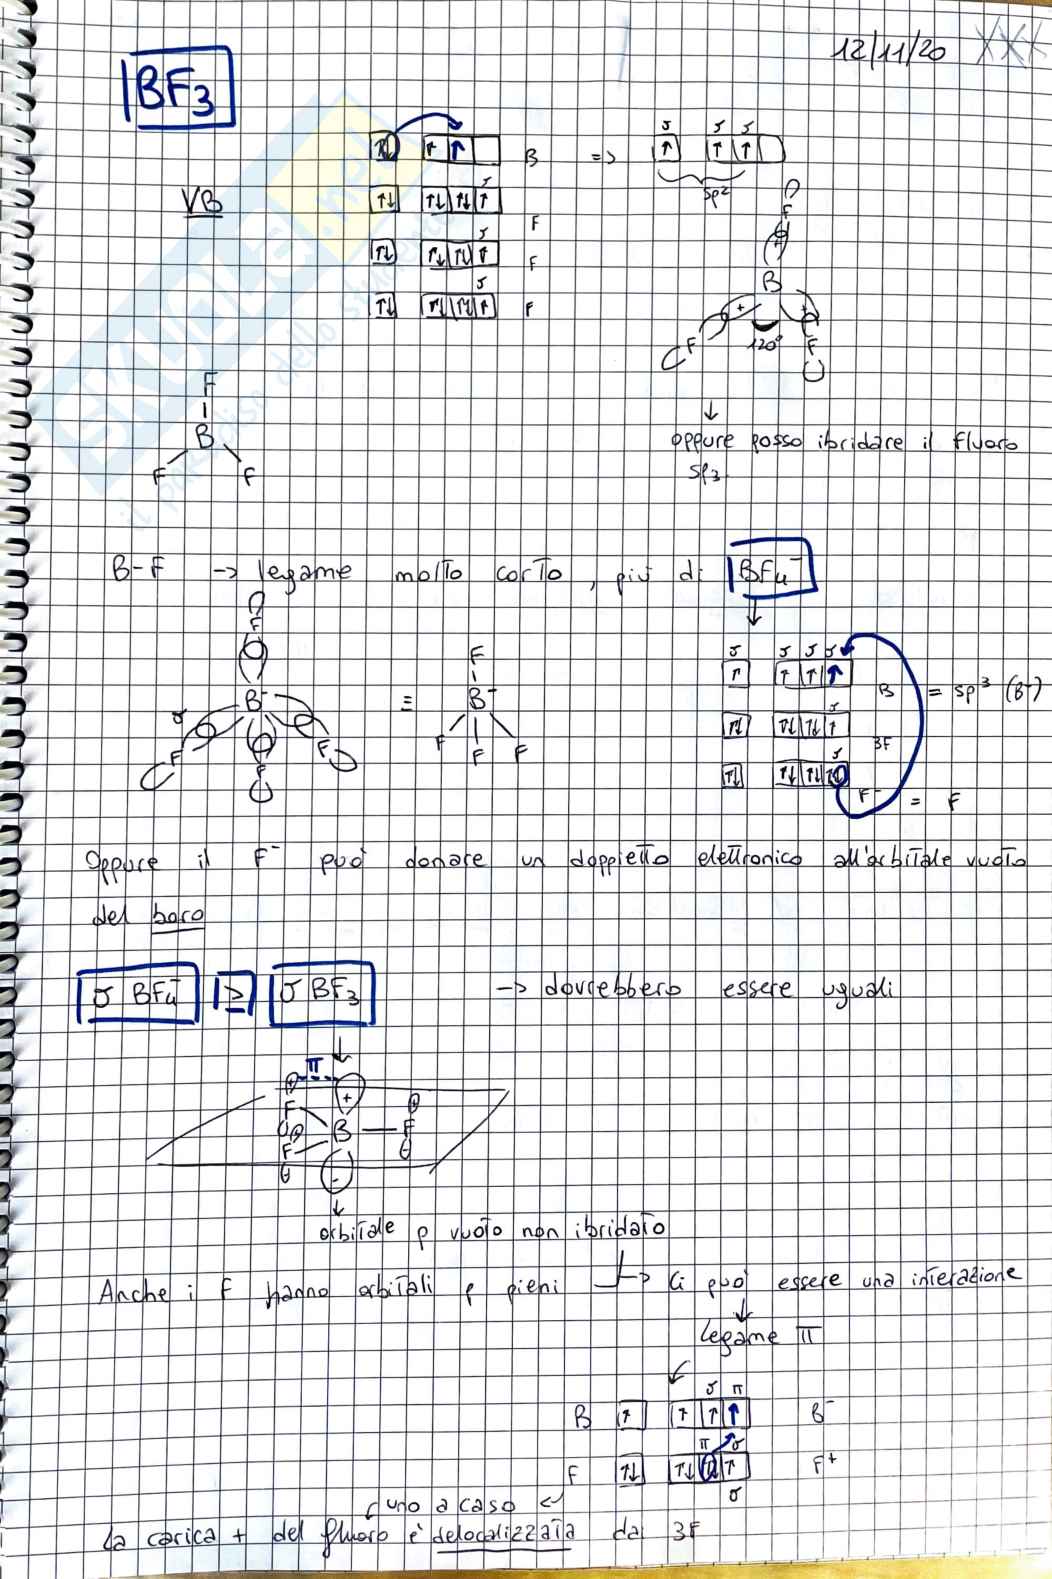 12/11/20
BF3
B => 
sp2
VB
F
F
F
F
B
F F
120°
F
B
F F
oppure posso ibridare il fluoro
sp3.
B-F -> legame molto corto, più di BF4-
F
B-
F F
F
≡
F
B-
F F F
σ σ σ σ
B = sp3 (B-)
3F
F- = F
Oppure il F- può donare un doppietto elettronico all'orbitale vuoto
del boro
σ BF4- > σ BF3 -> dovrebbero essere uguali
π
+
F
B — F
F
-
orbitale p vuoto non ibridato
Anche i F hanno orbitali p pieni -> Ci può essere una interazione
legame π
σ π
B B-
π σ
F F+
σ
uno a caso
La carica + del fluoro è delocalizzata dai 3F
skuola.net
il paradiso dello studente